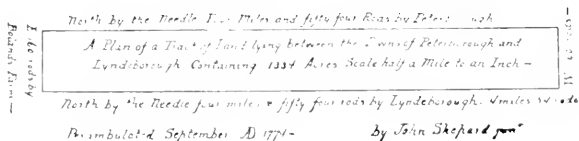 North by the Needle Four Miles and fifty four Rods by Peterborough
A Plan of a Tract of Land lying between the Towns of Peterborough and
Lyndeborough Containing 1334 Acres Scale half a Mile to an Inch —
North by the Needle four miles & fifty four rods by Lyndeborough. 4 miles
Perambulated September AD 1771 —
by John Shepard
rods by